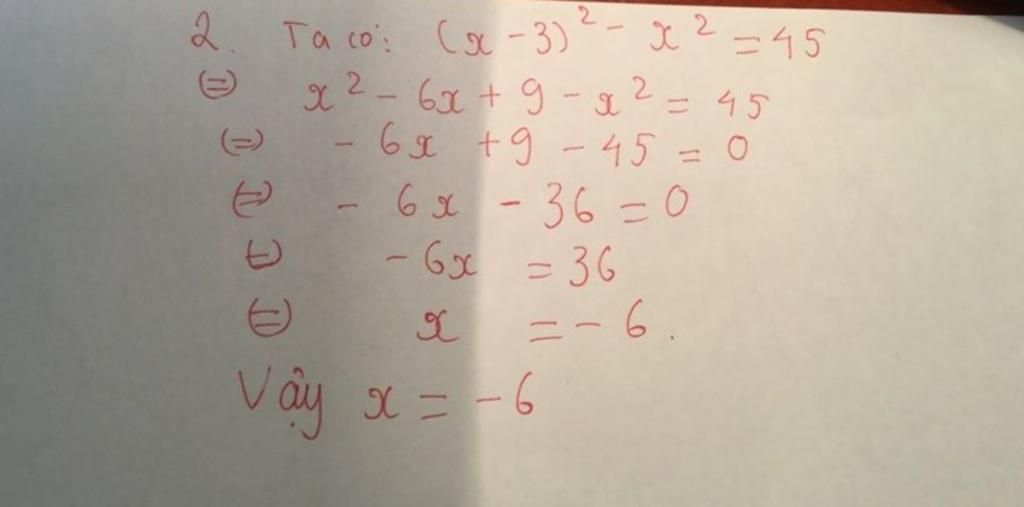 2. Ta có: (x - 3)² - x² = 45
⇔ x² - 6x + 9 - x² = 45
⇔ - 6x + 9 - 45 = 0
⇔ - 6x - 36 = 0
⇔ - 6x = 36
⇔ x = - 6.
Vậy x = - 6